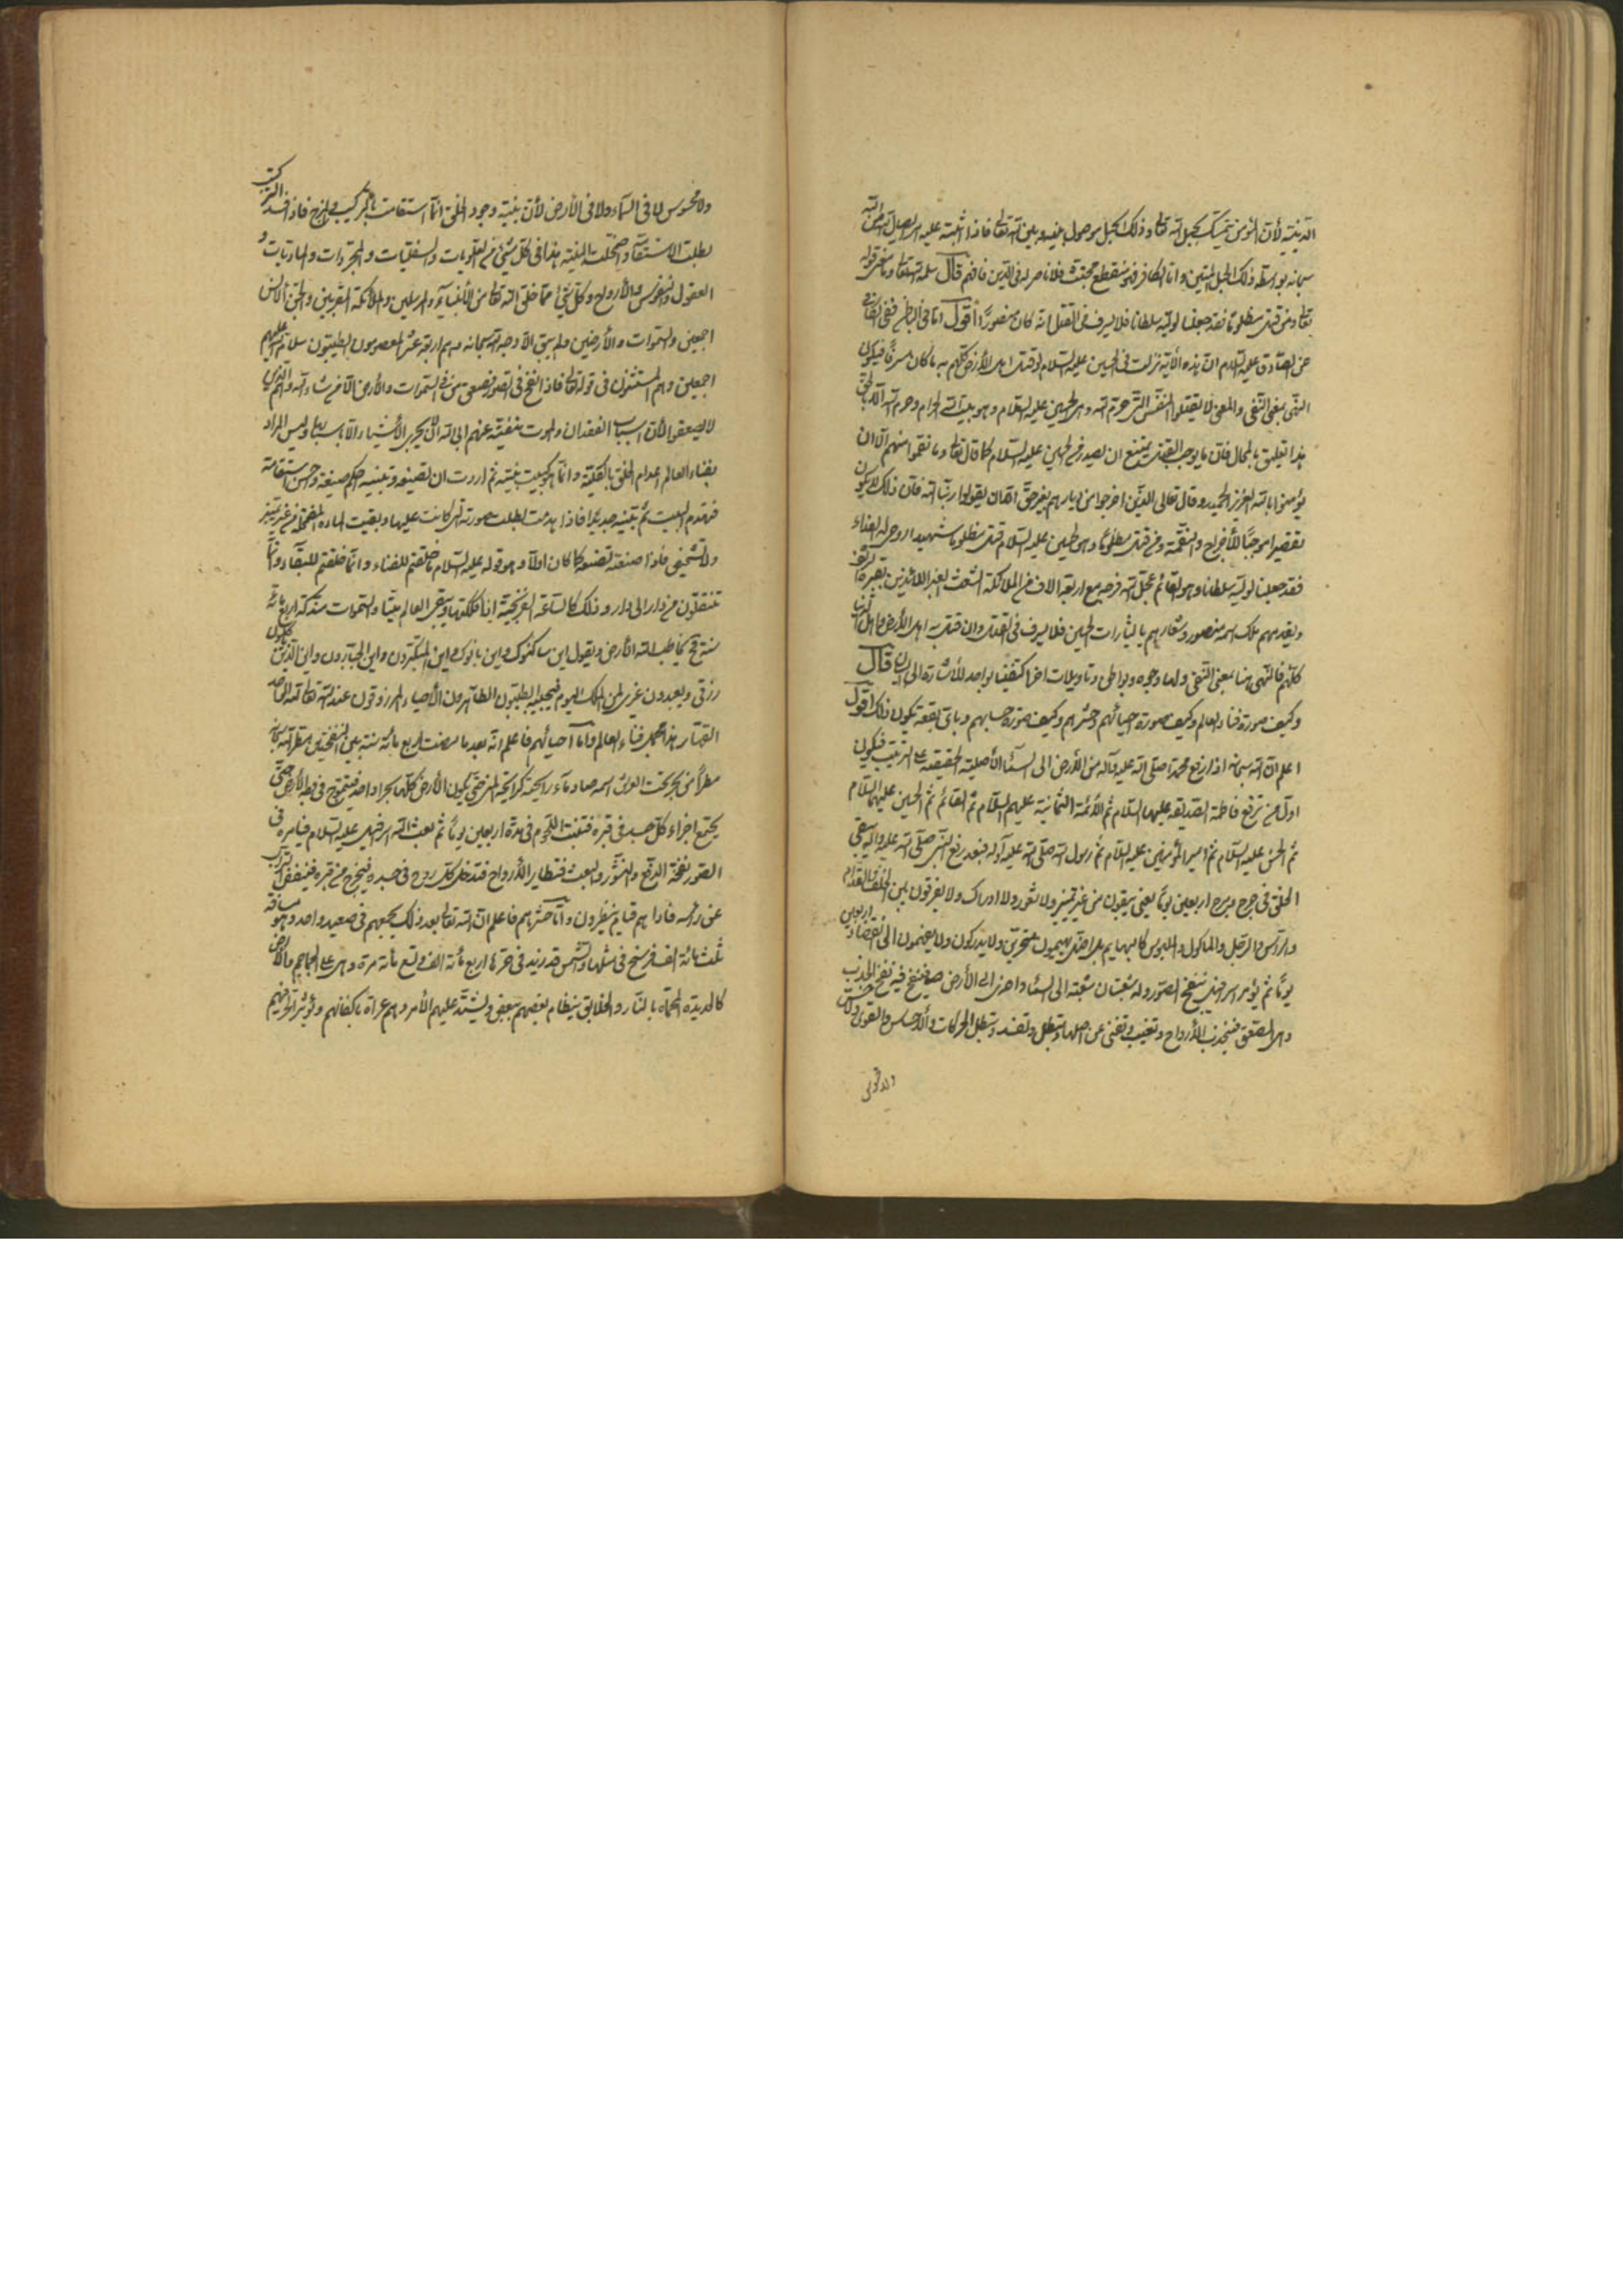 الدينية لأن المؤمن تمسك بحبل الله تعالى وذلك الحبل موصول بينه وبين الله تعالى فاذا اشتبه عليه
سبحانه بواسطة ذلك الحبل المتين واما الكافر فهو منقطع فلا ناصر له في الدين فافهم قال سلمه الله تعالى وما معنى قوله
تعالى ومن قتل مظلوما فقد جعلنا لوليه سلطانا فلا يسرف في القتل انه كان منصوراً اقول اما في الباطن ففي الكافي
عن الصادق عليه السلام ان هذه الآية نزلت في الحسين عليه السلام لو قتل اهل الأرض كلهم به ما كان مسرفا فيكون
النهي بمعنى النفي والمعنى لا تقتلوا النفس التي حرم الله وهي الحسين عليه السلام وهو بيت الله الحرام وحرم الله الا بالحق
هذا تعليق بالمحال فان ما يوجب القتل يمتنع ان يصدر من الحسين عليه السلام كما قال تعالى وما نقموا منهم الا ان
يؤمنوا بالله العزيز الحميد وقال تعالى الذين اخرجوا من ديارهم بغير حق الا ان يقولوا ربنا الله فان ذلك لا يكون
تقصيرا موجبا للأخراج والنقمة ومن قتل مظلوما وهو الحسين عليه السلام قتل مظلوما شهيدا روحي له الفداء
فقد جعلنا لوليه سلطانا وهو القائم عجل الله فرجه مع اربعة الاف من الملائكة الشعث الغبر اللائذين بقبره
ويقدمهم ملك اسمه منصور وشعارهم يا لثارات الحسين فلا يسرف في القتل وان قتل به اهل الأرض
كلهم فالنهي هنا بمعنى النفي ولها وجوه وبواطن وتأويلات اخر اكتفينا بواحد للأشارة الى البيان قال
وكيف صورة فناء العالم وكيف صورة احيائهم وحشرهم وكيف صورة حسابهم وباي بقعة يكون ذلك اقول
اعلم ان الله سبحانه اذا رفع محمدا صلى الله عليه وآله من الأرض الى السماء الأصلية الحقيقية على الترتيب فيكون
اول من ترفع فاطمة الصديقة عليها السلام ثم الأئمة الثمانية عليهم السلام ثم القائم ثم الحسين عليهما السلام
ثم الحسن عليه السلام ثم امير المؤمنين عليه السلام ثم رسول الله صلى الله عليه وآله فبعد رفع النبي صلى الله عليه وآله يبقى
الخلق في هرج ومرج اربعين يوما يعني يبقون من غير تميز ولا شعور ولا ادراك ولا يفرقون بين الخلف والقدام
والرأس والرجل والمأكول والملبوس كالبهايم بل اضل يهيمون متحيرين ولا يدركون ولا يفهمون الى انقضاء اربعين
يوما ثم يؤمر اسرافيل ينفخ الصور وله شعبتان شعبة الى السماء واخرى الى الأرض فينفخ فيه نفخ الجذب
وهي الصعق فينجذب الأرواح وتغيب وتفنى عن اصلها وتبطل وتفسد وتبطل الحركات والأحساس والقوى ولا حس
ولا محسوس لا في السماء ولا في الأرض لأن بنية وجود الخلق انما استقامت بالتركيب والمزج فاذا فسد التركيب
بطلت الاستقامة واضمحلت البنية هذا في كل شيء من العلويات والسفليات والمجردات والماديات و
العقول والنفوس والأرواح وكل شيء مما خلق الله تعالى من الأنبياء والمرسلين والملائكة المقربين والجن والانس
اجمعين والسموات والأرضين ولم يبق الا وجه الله سبحانه وهم اربعة عشر المعصومون الطيبون سلام الله عليهم
اجمعين وهم المستثنون في قوله تعالى فاذا نفخ في الصور فصعق من في السموات والأرض الا من شاء الله وانهم
لا يصعقوا لأن اسباب الفقدان والموت منفية عنهم ابى الله ان يجري الأشياء الا باسبابها وليس المراد
بفناء العالم اعدام الخلق بالكلية وانما هو كبيت بنيته ثم اردت ان تصنعه وتبنيه احكم صنعة وحسن استقامة
فتهدم البيت ثم تبنيه جديدا فاذا هدمت بطلت صورته التي كانت عليها وبقيت المادة المضمحلة من غير تميز
ولا تشخيص فاذا صنعته تصنعه كما كان اولا وهو قوله عليه السلام ما خلقتم للفناء وانما خلقتم للبقاء وانما
تنتقلون من دار الى دار وذلك كالساعة الفرنجية اذا فككتها ويبقى العالم ميتا والسموات متحركة اربع مائة
سنة فح يخاطب الله الأرض ويقول اين ساكنوك واين بانوك واين المتكبرون واين الجبارون واين الذين ياكلون
رزقي ويعبدون غيري لمن الملك اليوم فيجيبه الطيبون الطاهرون الأحياء المرزوقون عند الله تعالى لله الواحد
القهار هذا مجمل فناء العالم واما احيائهم فاعلم انه بعد ما مضت اربع مائة سنة بين النفختين يمطر الله سبحانه
مطراً من بحر تحت العرش اسمه صاد ماء رايحته كرايحة المني حتى يكون الأرض كلها بحرا واحدا فيتموج في وجه الأرض حتى
يجتمع اجزاء كل جسد في قبره فتنبت اللحوم في مدة اربعين يوماً ثم يبعث الله اسرافيل عليه السلام فيأمره في
الصور نفخة الدفع والنشور والبعث فتطاير الأرواح فتدخل كل روح في جسده فيخرج من قبره فينفض التراب
عن رأسه فاذا هم قيام ينظرون واما حشرهم فاعلم ان الله تعالى بعد ذلك يجمعهم في صعيد واحد وهو مسافة
ثلث مائة الف فرسخ في مثلها والشمس قد زيد في حرها اربع مائة الف وتسع مائة مرة وهي على الجماجم والأرض
كالحديدة المحماة بالنار والخلايق ينظام بعضهم ببعض ويشتد عليهم الأمر وهم عراة باكفانهم